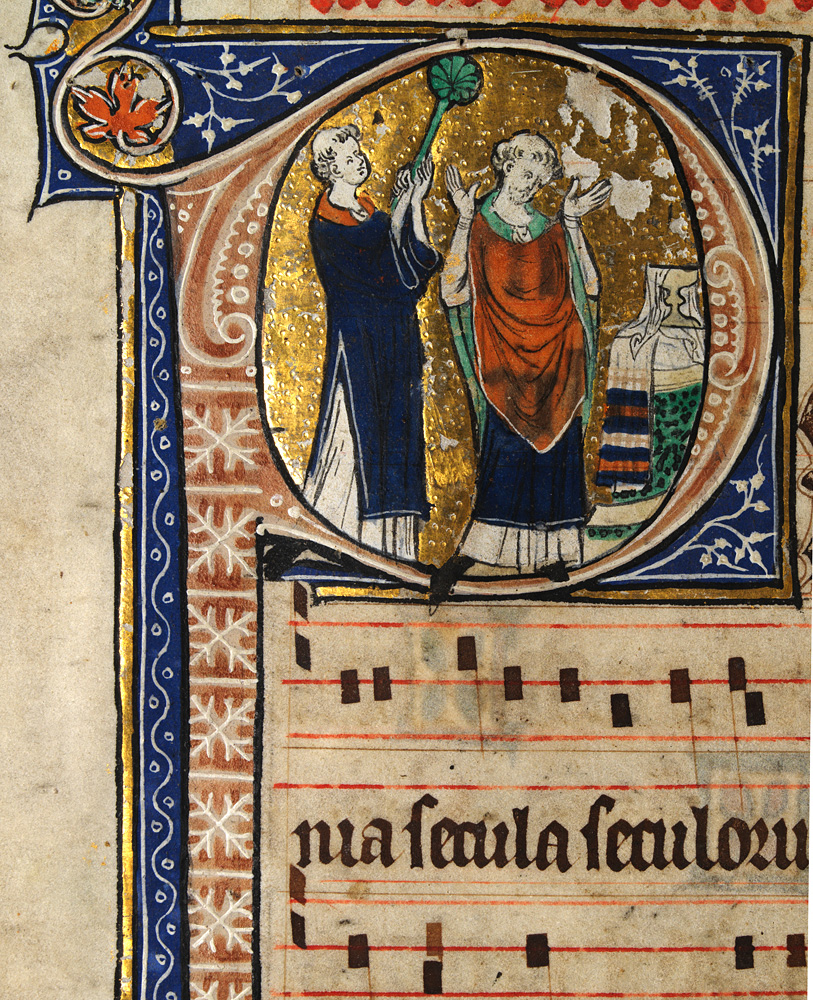 nia secula seculoru